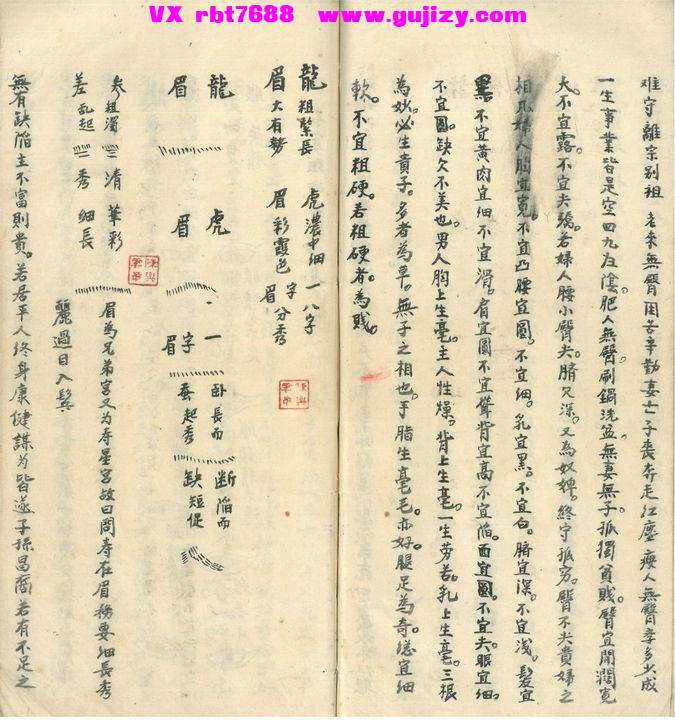 VX rbt7688 www.gujizy.com
难守離宗别祖 老来無臀困苦辛勤妻亡子丧奔走红塵 瘦人無臀辛多少成
一生事業皆是空四九应陰。肥人無臀刷鍋洗盆。無妻無子。孤獨貧賎。臀宜開闊寬
大。不宜露。不宜夫骄。若婦人腰小臀夫。臍欠深。又為奴婢。終守孤窮。臀不夫贵婦之
相凡婦人胸宜寬。不宜凸腰宜圓。不宜细。乳宜黑。不宜白。臍宜深。不宜浅。髪宜
黑不宜黄肉宜细不宜滑。肩宜圓不宜聳背宜高不宜陷。面宜圓。不宜夫眼宜细。
不宜圆。缺欠不美也。男人胸上生毫。主人性燥。背上生毫。一生劳苦。乳上生毫。三根
為妙。必生貴子。多者為草。無子之相也。手脂生毫毛。亦好。腿足為奇。總宜细
軟。不宜粗硬。若粗硬者。為賎。
龍粗緊長 虎濃中细 一八字
眉大有勢 眉彩霞色 字眉分秀
龍 虎 一 卧長而 断陷而
眉 眉 字眉 蚕起秀 缺短促
粗濁 清 華彩
差乱起 秀 细長
眉為兄弟宮又為寿星宮故曰問寿在眉務要细長秀
麗過目入鬂
無有缺陷主不富則貴。若居平人終身康健謀為皆遂子孫昌裔若有不足之